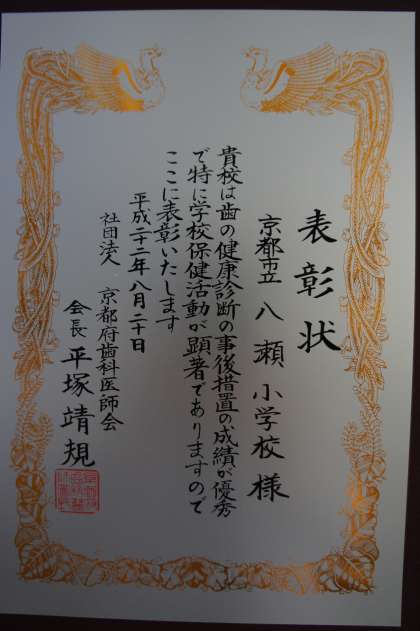 表彰状
京都市立 八瀬小学校様
貴校は歯の健康診断の事後措置の成績が優秀
で特に学校保健活動が顕著でありますので
ここに表彰いたします
平成二十二年八月二十日
社団法人 京都府歯科医師会
会長 平塚靖規